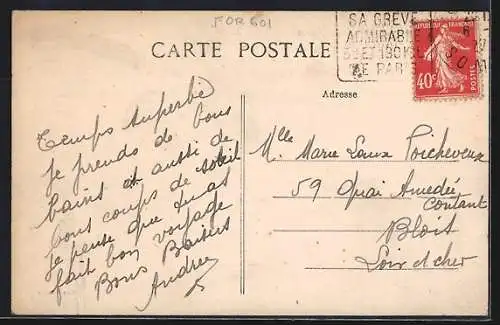 FOR601
SA GRÈVE
ADMIRABLE
DE PARIS
CARTE POSTALE
RÉPUBLIQUE FRANÇAISE
40c
POSTES
Adresse
Temps superbe
je prends de bons
bains et aussi de
bons coups de soleil
je pense que
fait bon voyage
Bons Baisers
Andrée
Mlle Marie Loux Poicheveux
59 Quai Amedée
Contant
Blois
Loir et cher